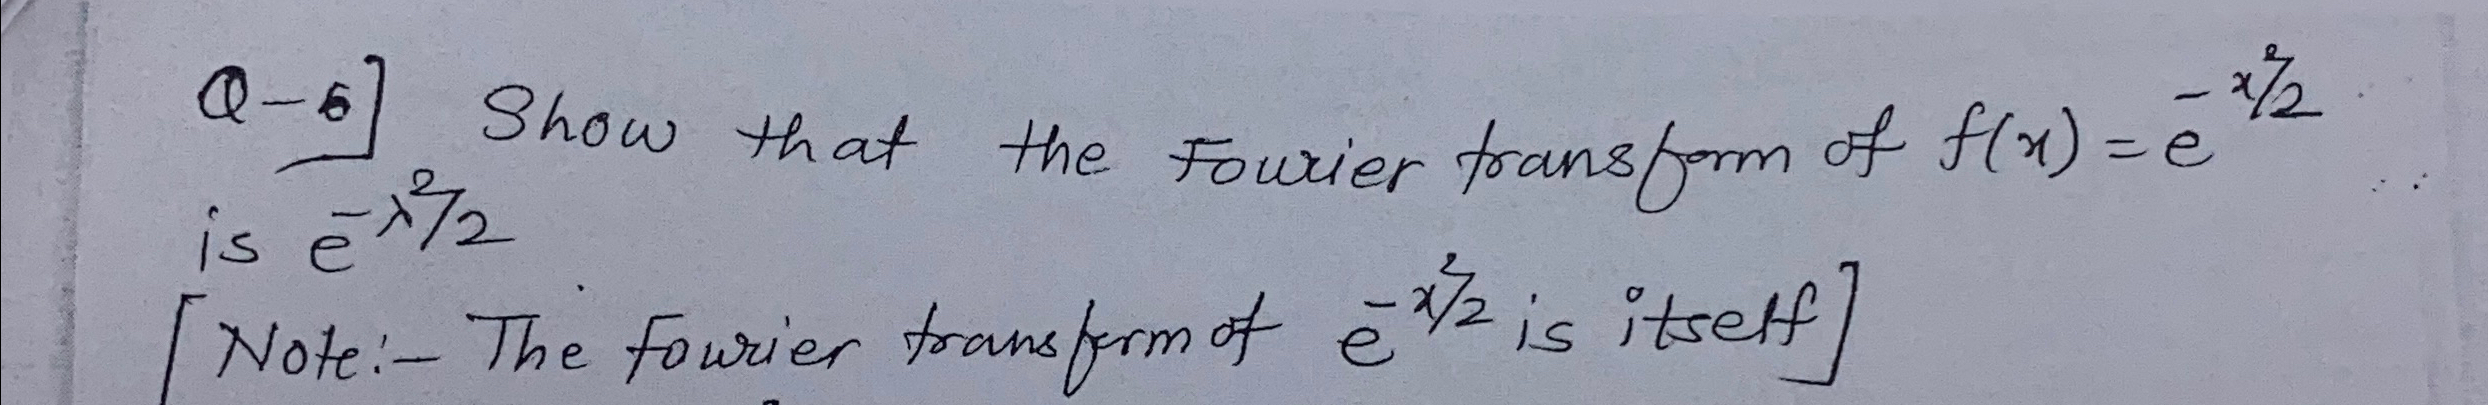 Q-5] Show that the Fourier transform of f(x) = e^{-x²/2}
is e^{-λ²/2}
[Note:- The Fourier transform of e^{-x²/2} is itself]